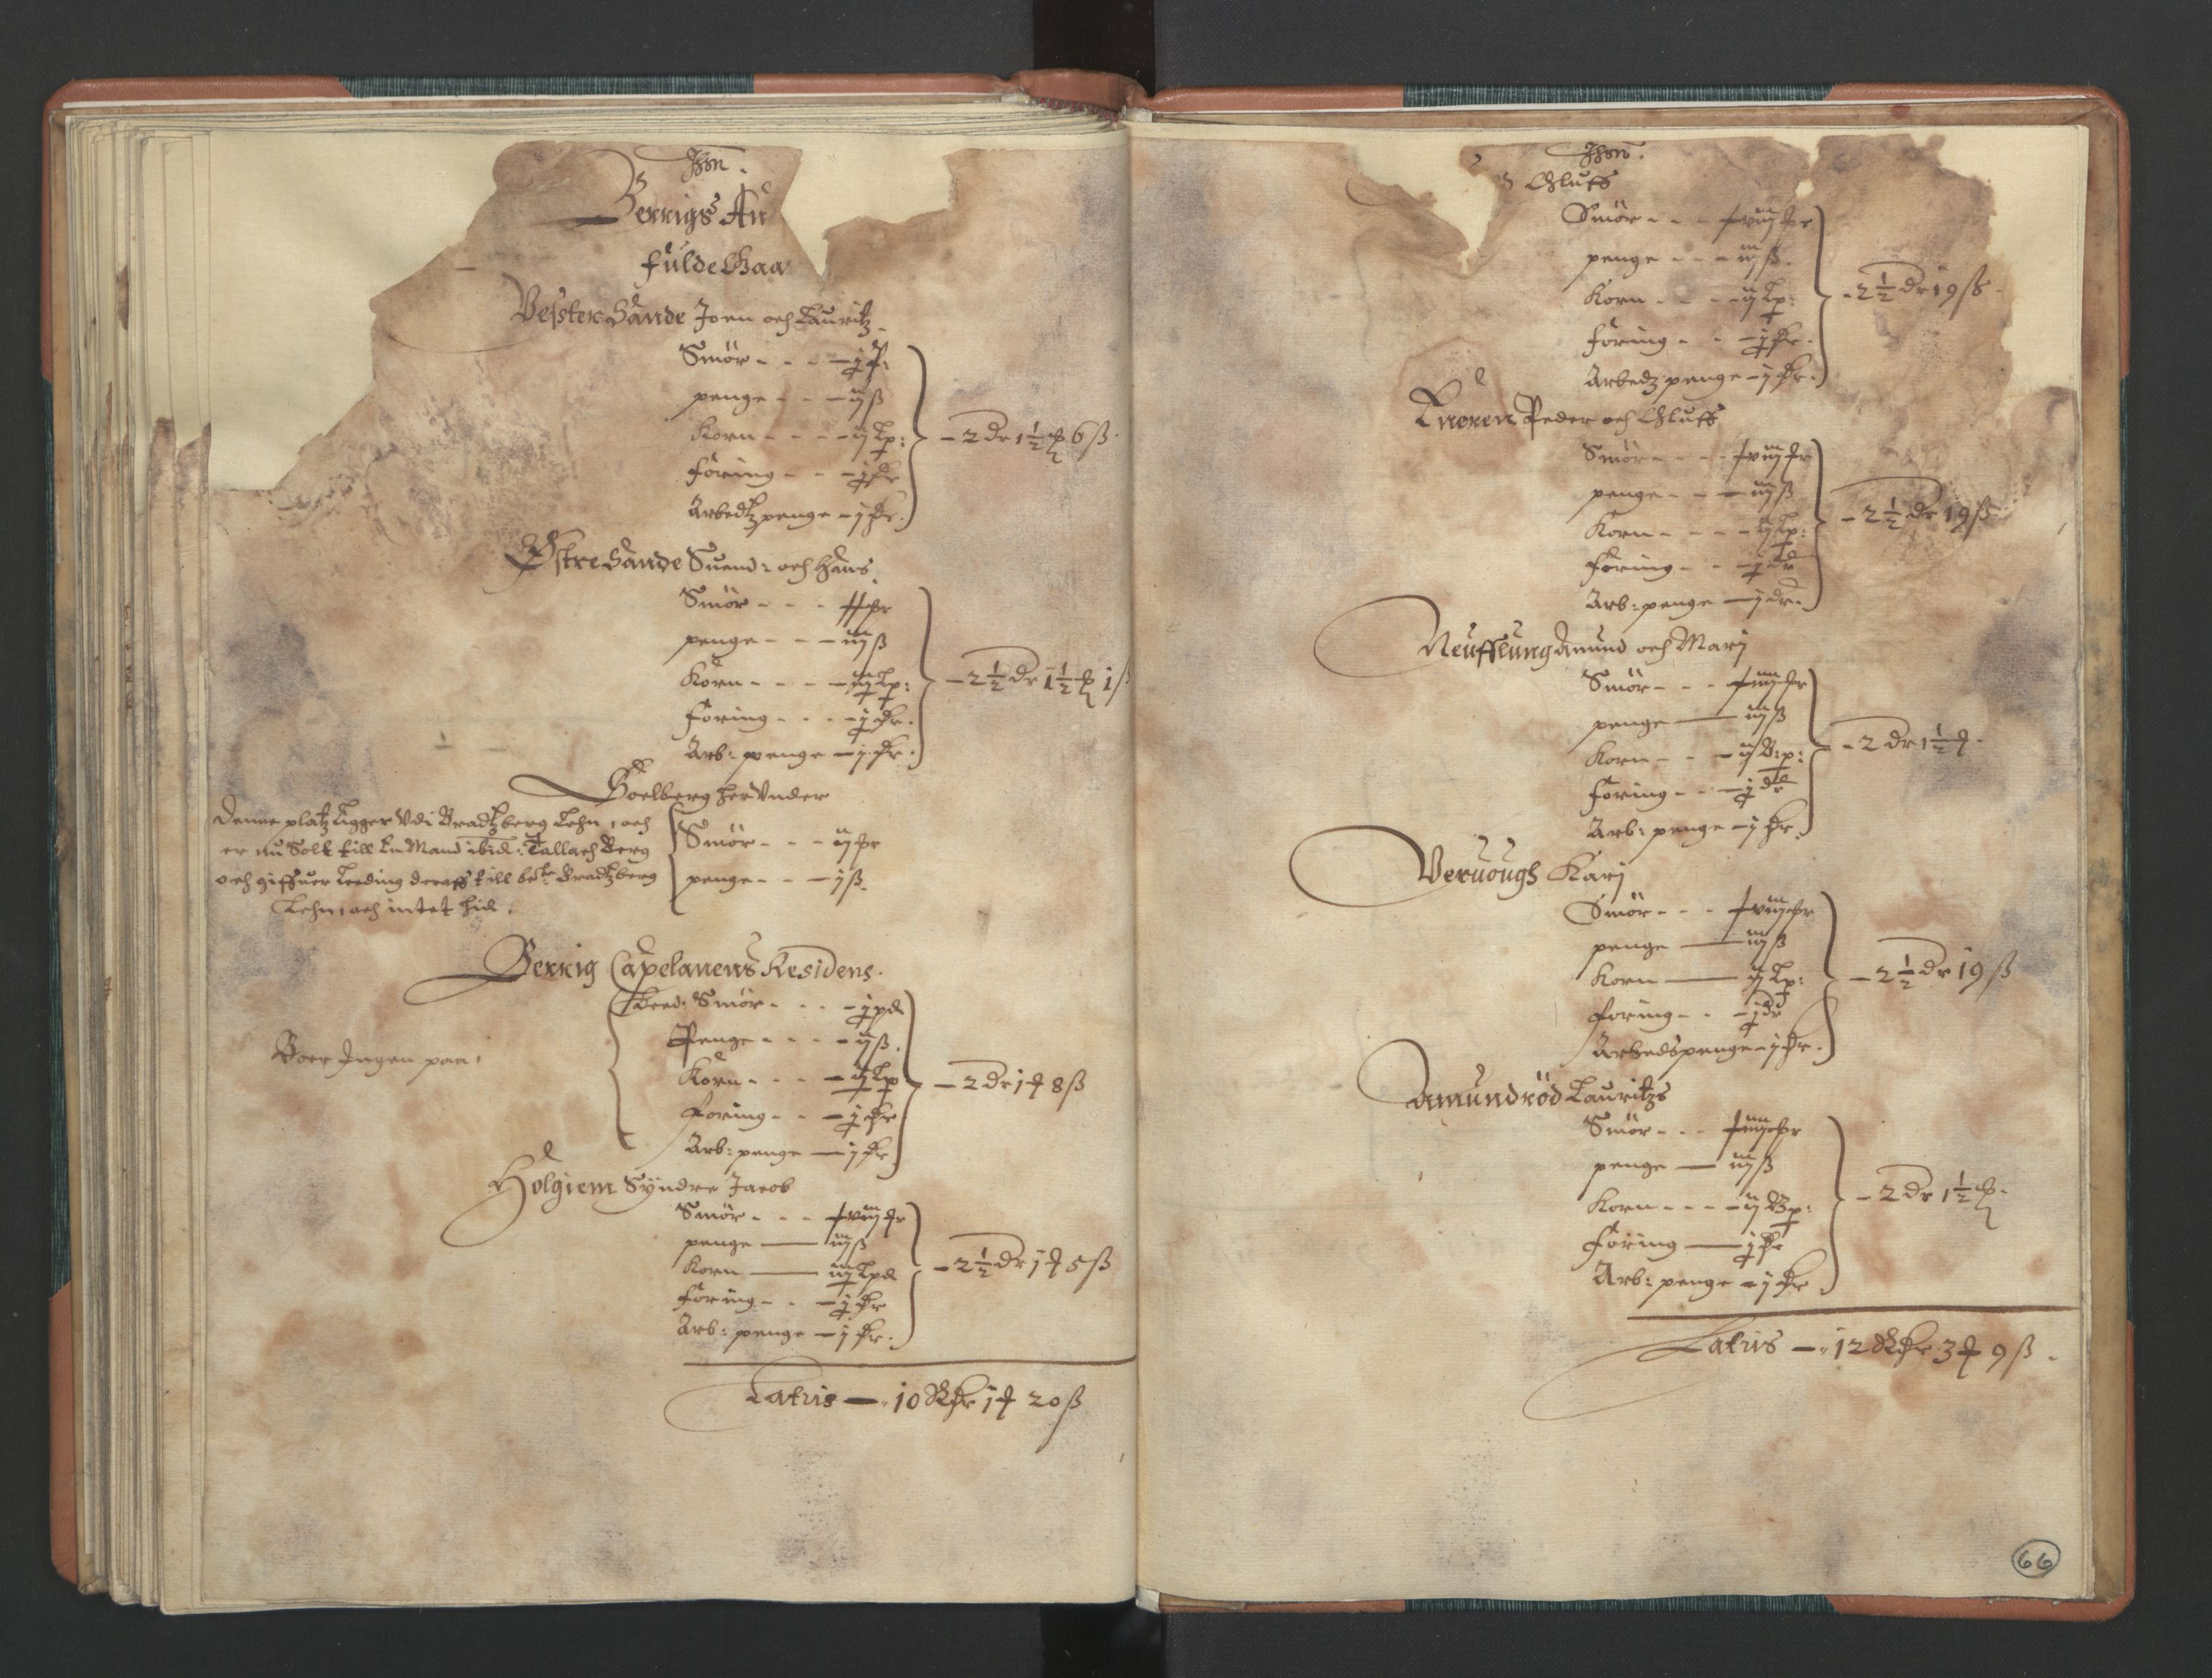 Jhm.
Berrigs An
fulde Gaa
Vester Sande Joen och Lauritz
Smör - - - j p:
penge - - - iij ß
Korn - - - ij Lp:
föring - - j dr
Arbedtz penge - j dr.
- 2 dr 1½ 6 ß.
Østre Sande Suend: och Hans.
Smör - - -
penge - - - iiij ß
Korn - - - iij Lp:
föring - - - j dr.
Arb: penge - j dr.
- 2½ dr 1½ 1 ß
Goelberg her Vnder
Denne platz Ligger Vdi Bradtzberg Lehn, och
er nu Solt till En Mand ibid: Tallach Berg
och giffuer Leeding deraff till be:te Bradtzberg
Lehn, och intet hid.
Smör - - - ij pr
penge - - - j ß.
Berrig Capelanens Residens.
Boer Ingen paa.
Leed: Smör - - - j pd
Penge - - - - ij ß.
Korn - - - ij Lp
foring - - - j dr
Arb: penge - j dr
- 2 dr 1 8 ß
Holgiem Syndre Jacob
Smör - - -
penge — iiij ß
Korn — iij Lpd
föring - - j dr
Arb: penge - j dr.
- 2½ dr 1 5 ß
Latus —. 10 Rdr 1 20 ß
Jhm.
Oluff
Smör - - -
penge - - - iiij ß.
Korn - - - ij Lp:
föring - - j dr.
Arbedz penge - j dr.
- 2½ dr 19 ß.
Peder och Oluff
Smör - - -
penge - - - iiij ß
Korn - - - - ij Lp:
föring - - j dr
Arb: penge - j dr.
- 2½ dr 19 ß
Neufflung Amund och Marj
Smör - - -
penge — iiij ß
Korn - - - ij B:p:
föring - - j dr
Arb: penge - j dr.
- 2 dr 1½
Veruough Karj
Smör - - -
penge — iiij ß
Korn — ij Lp:
foring - - j dr
Arbedspenge - j dr.
- 2½ dr 19 ß
Amundröd Lauritzs
Smör - - -
penge — iiij ß
Korn - - - ij Bp:
föring — j dr
Arb: penge - j dr
- 2 dr 1½
Latus —. 12 Rdr 3 9 ß.
66